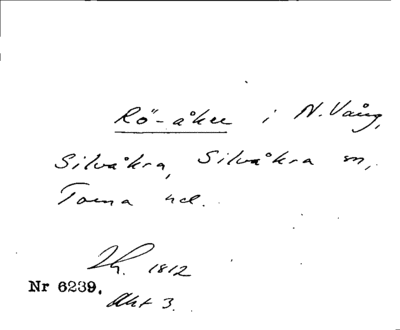 Rö-åker i N. Vång,
Silvåkra, Silvåkra sn,
Torna hd.
1812
Nr 6239.
Akt 3.